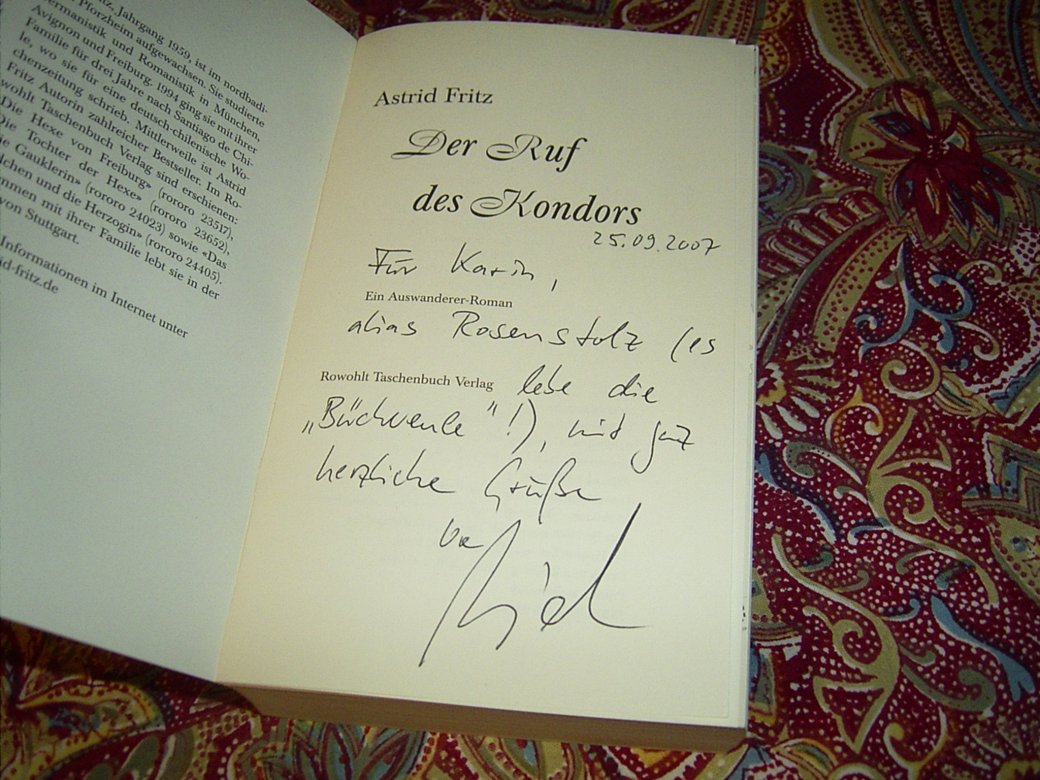 tz, Jahrgang 1959, ist im nordbadi-
Pforzheim aufgewachsen. Sie studierte
ermanistik und Romanistik in München,
Avignon und Freiburg. 1994 ging sie mit ihrer
Familie für drei Jahre nach Santiago de Chi-
le, wo sie für eine deutsch-chilenische Wo-
chenzeitung schrieb. Mittlerweile ist Astrid
Fritz Autorin zahlreicher Bestseller. Im Ro-
wohlt Taschenbuch Verlag sind erschienen:
«Die Hexe von Freiburg» (rororo 23517),
Die Tochter der Hexe» (rororo 23652),
ie Gauklerin» (rororo 24023) sowie «Das
dchen und die Herzogin» (rororo 24405).
mmen mit ihrer Familie lebt sie in der
von Stuttgart.
Informationen im Internet unter
id-fritz.de
Astrid Fritz
Der Ruf
des Kondors
25.09.2007
Für Karin,
Ein Auswanderer-Roman
alias Rosenstolz (es
Rowohlt Taschenbuch Verlag
lebe die
„Büchereule"!), mit ganz
herzliche Grüße